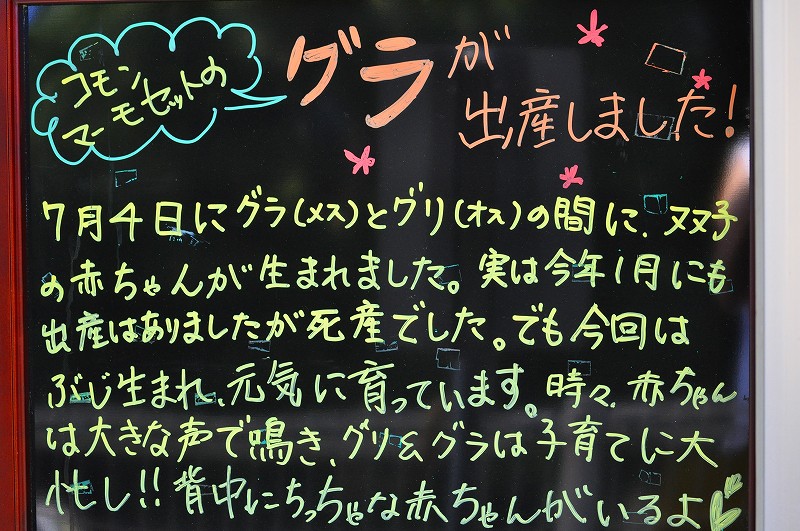 コモン
マーモセットの
グラが
出産しました!
7月4日にグラ(メス)とグリ(オス)の間に、双子
の赤ちゃんが生まれました。実は今年1月にも
出産はありましたが死産でした。でも今回は
ぶじ生まれ、元気に育っています。時々、赤ちゃん
は大きな声で鳴き、グリ&グラは子育てに大
忙し!!背中にちっちゃな赤ちゃんがいるよ